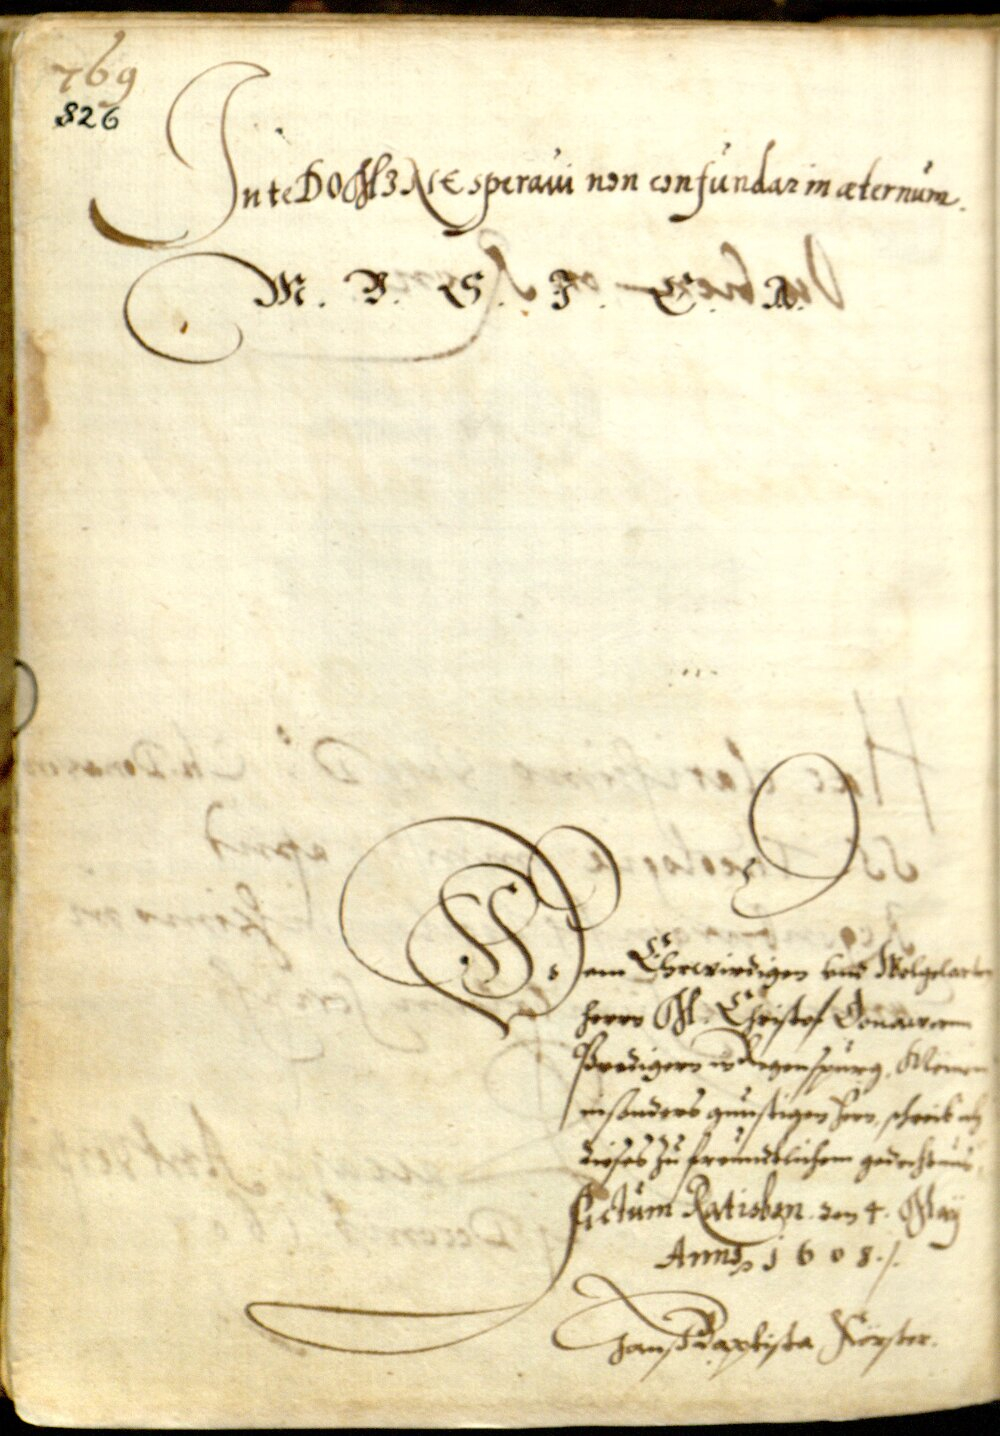 769
826
In te DOMINE speravi non confundar in æternum.
M. B. S. F. C. A.
Dem Ehrwirdigen vnd Wolgelarten
herrn M. Christof Donawern
Predigern in Regenspurg, Meinem
insonders günstigen herrn, schreib ich
dieses zu freundtlichem gedechtnus.
Actum Ratisbon. den 4. May
Anno 1608 ./.
Hans Baptista Förster.